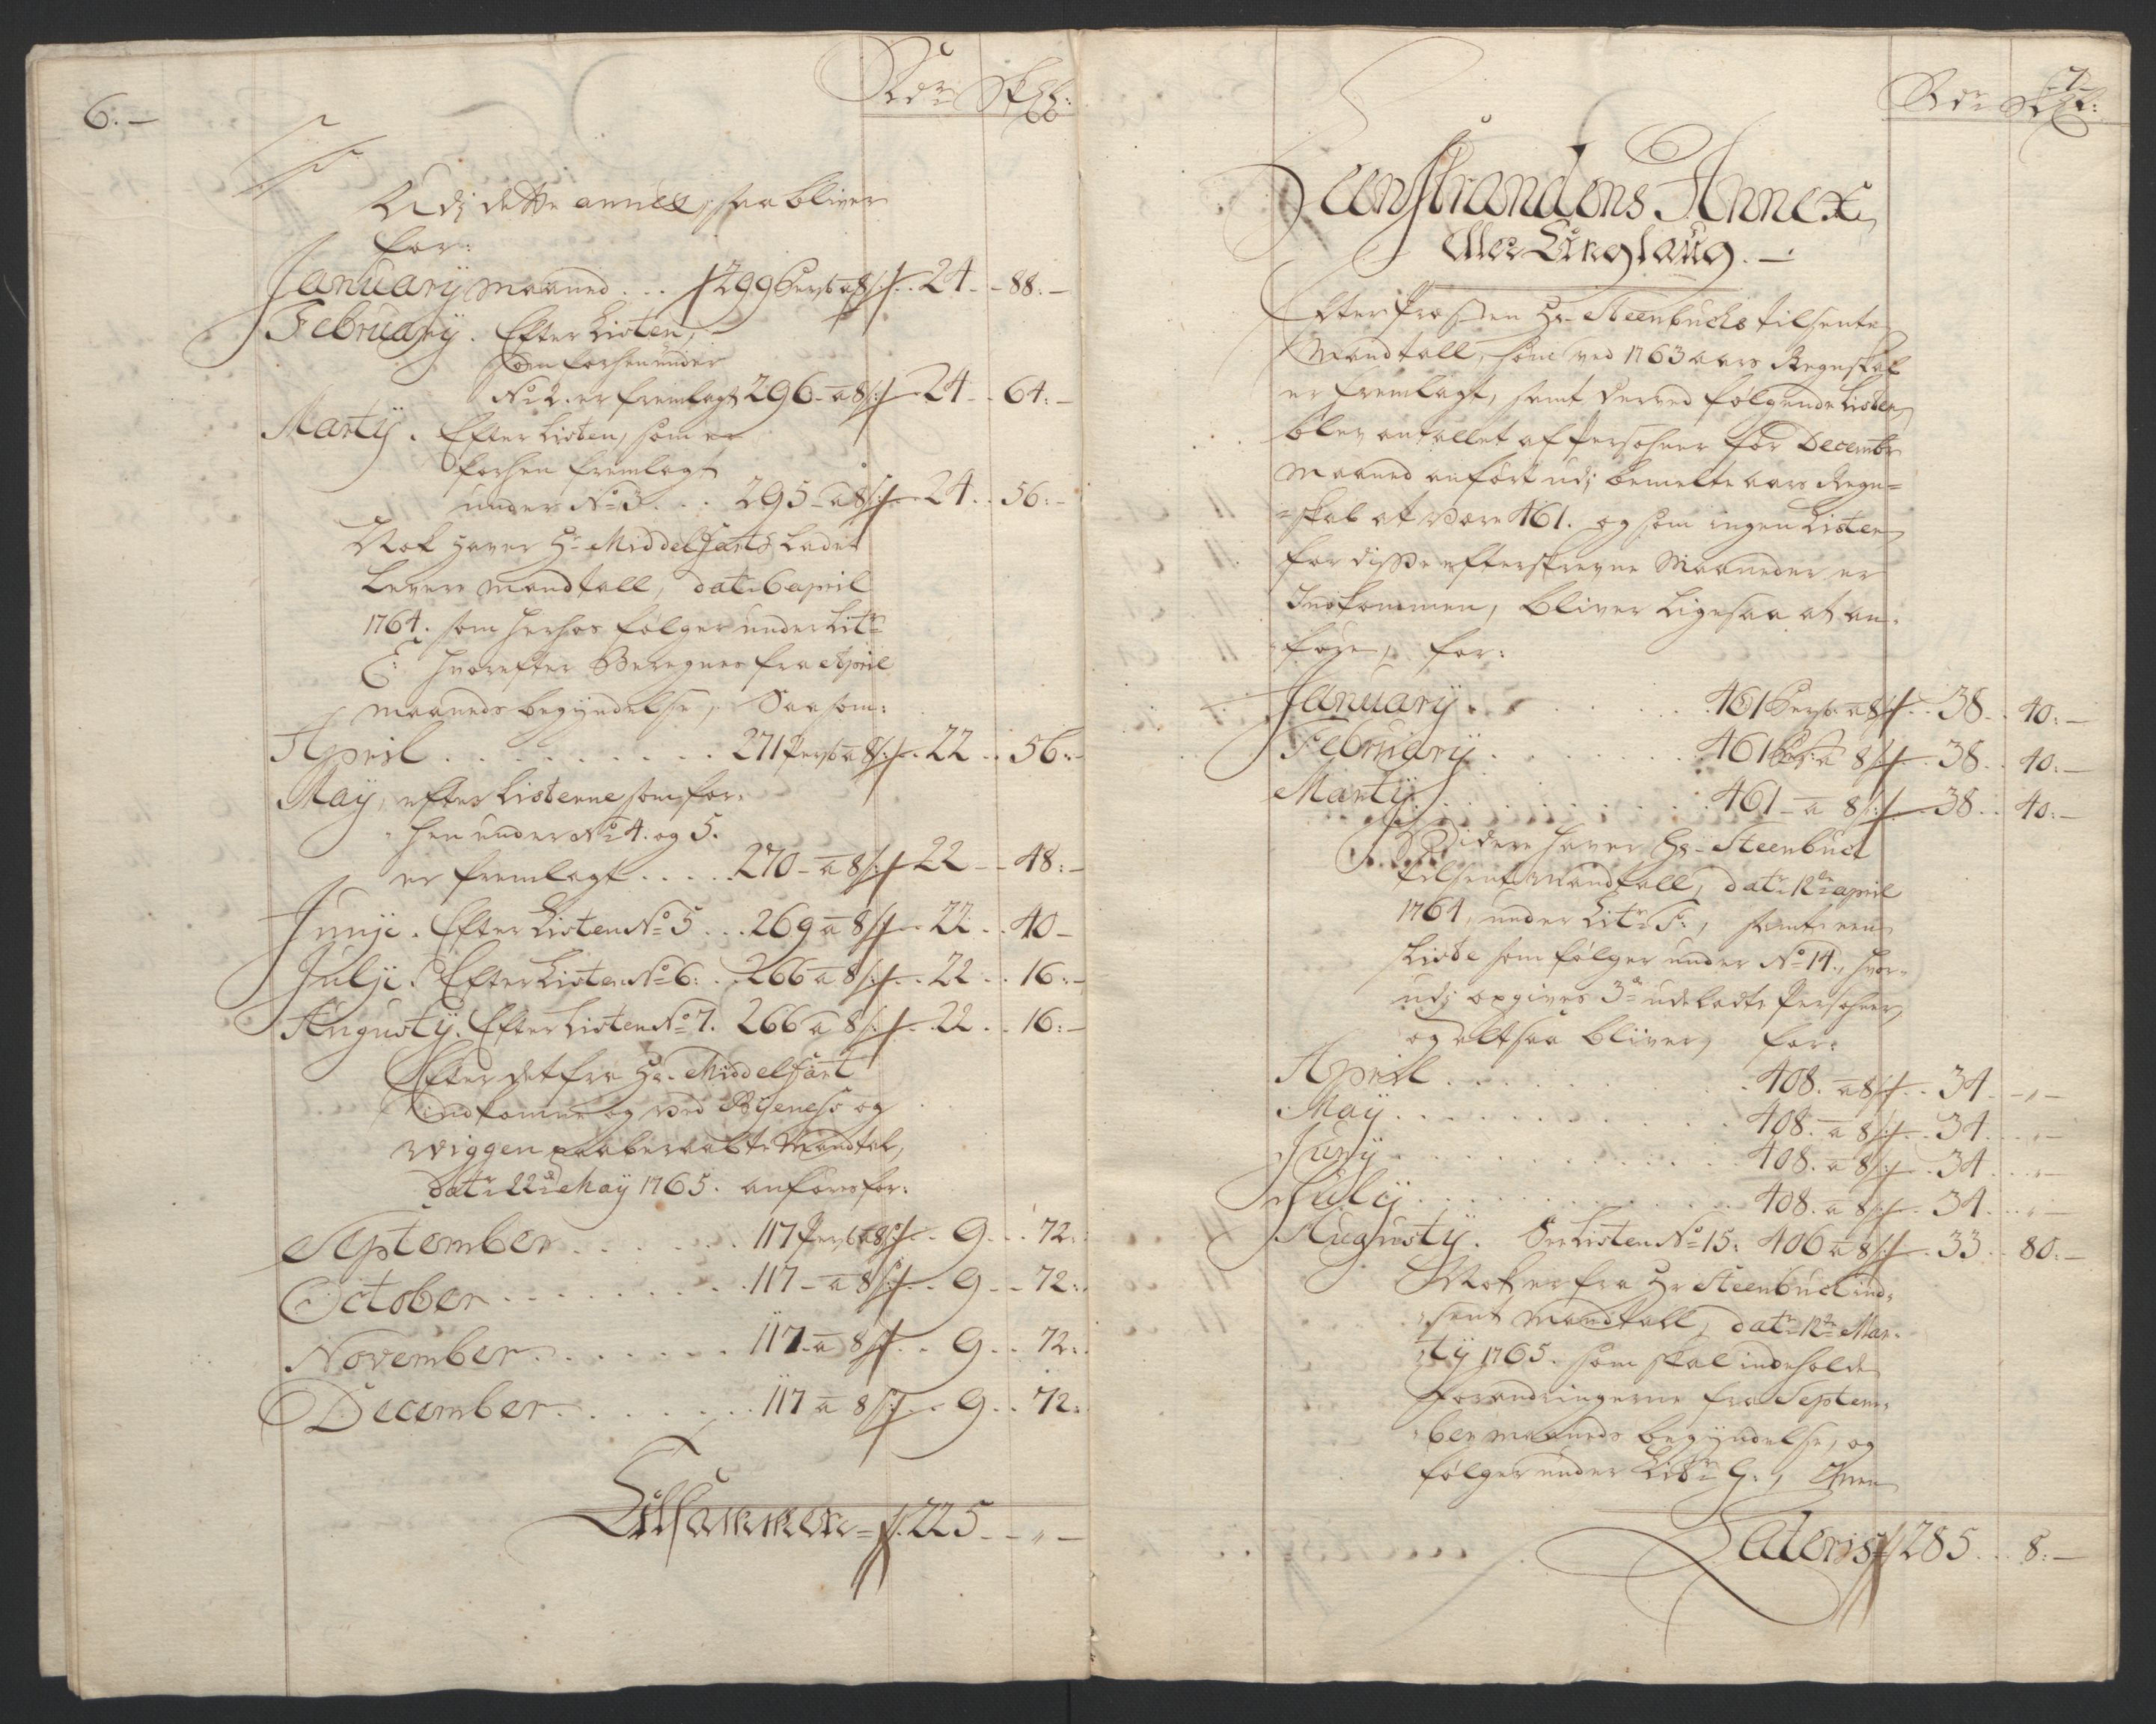 6:—
Rdr Skl:
Udj dette annex, saa bliver
for:
January Maaned . . . 299 Pers: a 8 s: . . 24 . . 88:—
February . Efter Listen,
som forhen under
No 2. er fremlagt 296 - a 8 s: . . 24 . . 64:—
Marty . Efter Listen, som er
forhen fremlagt
under No 3 . . . 295 - a 8 s: . . 24 . . 56:—
Nok haver Hr. Middelfart ladet
levere Mandtall, dat: 6 april
1764. som herhos følger under Litr
E: hvorefter Beregnes fra April
maaneds begyndelse, Saasom:
April . . . . . . . . . 271 Pers: a 8 s: . . 22 . . 56:—
May, efter Listerne som for-
hen under No 4. og 5.
er fremlagt . . . . 270 - a 8 s: 22 . . 48:—
Junij . Efter Listen No 5 . . . 269 a 8 s: . . 22 . . 40 —
Julji . Efter Listen No 6: . . 266 a 8 s: . . 22 . . 16:—
Augusty . Efter Listen No 7. 266 a 8 s: . . 22 . . 16:—
Efter det fra Hr. Middelfart
indkomne og ved Byenes og
Wiggen paaberaabte Mandtal,
datr 22de May 1765. anføres for:
September . . . . . . 117 Pers: a 8 s: . . 9 . . 72:
October . . . . . . . . 117 - a 8 s: . . 9 . . 72:
November . . . . . . . 117 - a 8 s: . . 9 . . 72:
December . . . . . . . 117 a 8 s: . . 9 . . 72:
Tilsammen = 225 — „ —
7
Rdr Skl:
Leenstrandens Annex
eller Tinglaug . —
Efter Præsten Hr. Steenbuchs tilsente
Mandtall, som ved 1763 aars Regnskab
er fremlagt, samt derved følgende Lister,
blev antallet af Persohner for Decembr
Maaned anført udj bemelte aars Regn-
skab at være 461. og som ingen Lister
for disse efterskrevne Maaneder er
Indkommen, bliver ligesaa at an-
føre, for:
January . . . . . . . . 461 Pers: a 8 s: . . 38 . . 40:—
February . . . . . . . 461 Pers: a 8 s: . . 38 . . 40:—
Marty . . . . . . . . . 461 - a 8 s: . . 38 . . 40:—
Videre haver Hr. Steenbuch
tilsent Mandtall, datr 12te april
1764, under Litr F:, samt een
Liste som følger under No 14., hvor-
udj opgives 3de udeladte Persohner,
og altsaa bliver, for:
April . . . . . . . . . 408. a 8 s: . . 34 . — „ —
May . . . . . . . . . . 408. a 8 s: . . 34 . . . „ —
Juny . . . . . . . . . 408. a 8 s: . . 34 . . . „ —
July . . . . . . . . . 408. a 8 s: . . 34 . . . „ —
Augusty . See Listen No 15: 406 a 8 s: . . 33 . . 80:—
Nok er fra Hr Steenbuch ind-
sent Mandtall, datr 12te Mar-
ty 1765. som skal indeholde
forandringerne fra Septem-
ber maaneds begyndelse, og
følger under Litr G:, Men
Lateris 285 . . . 8:—